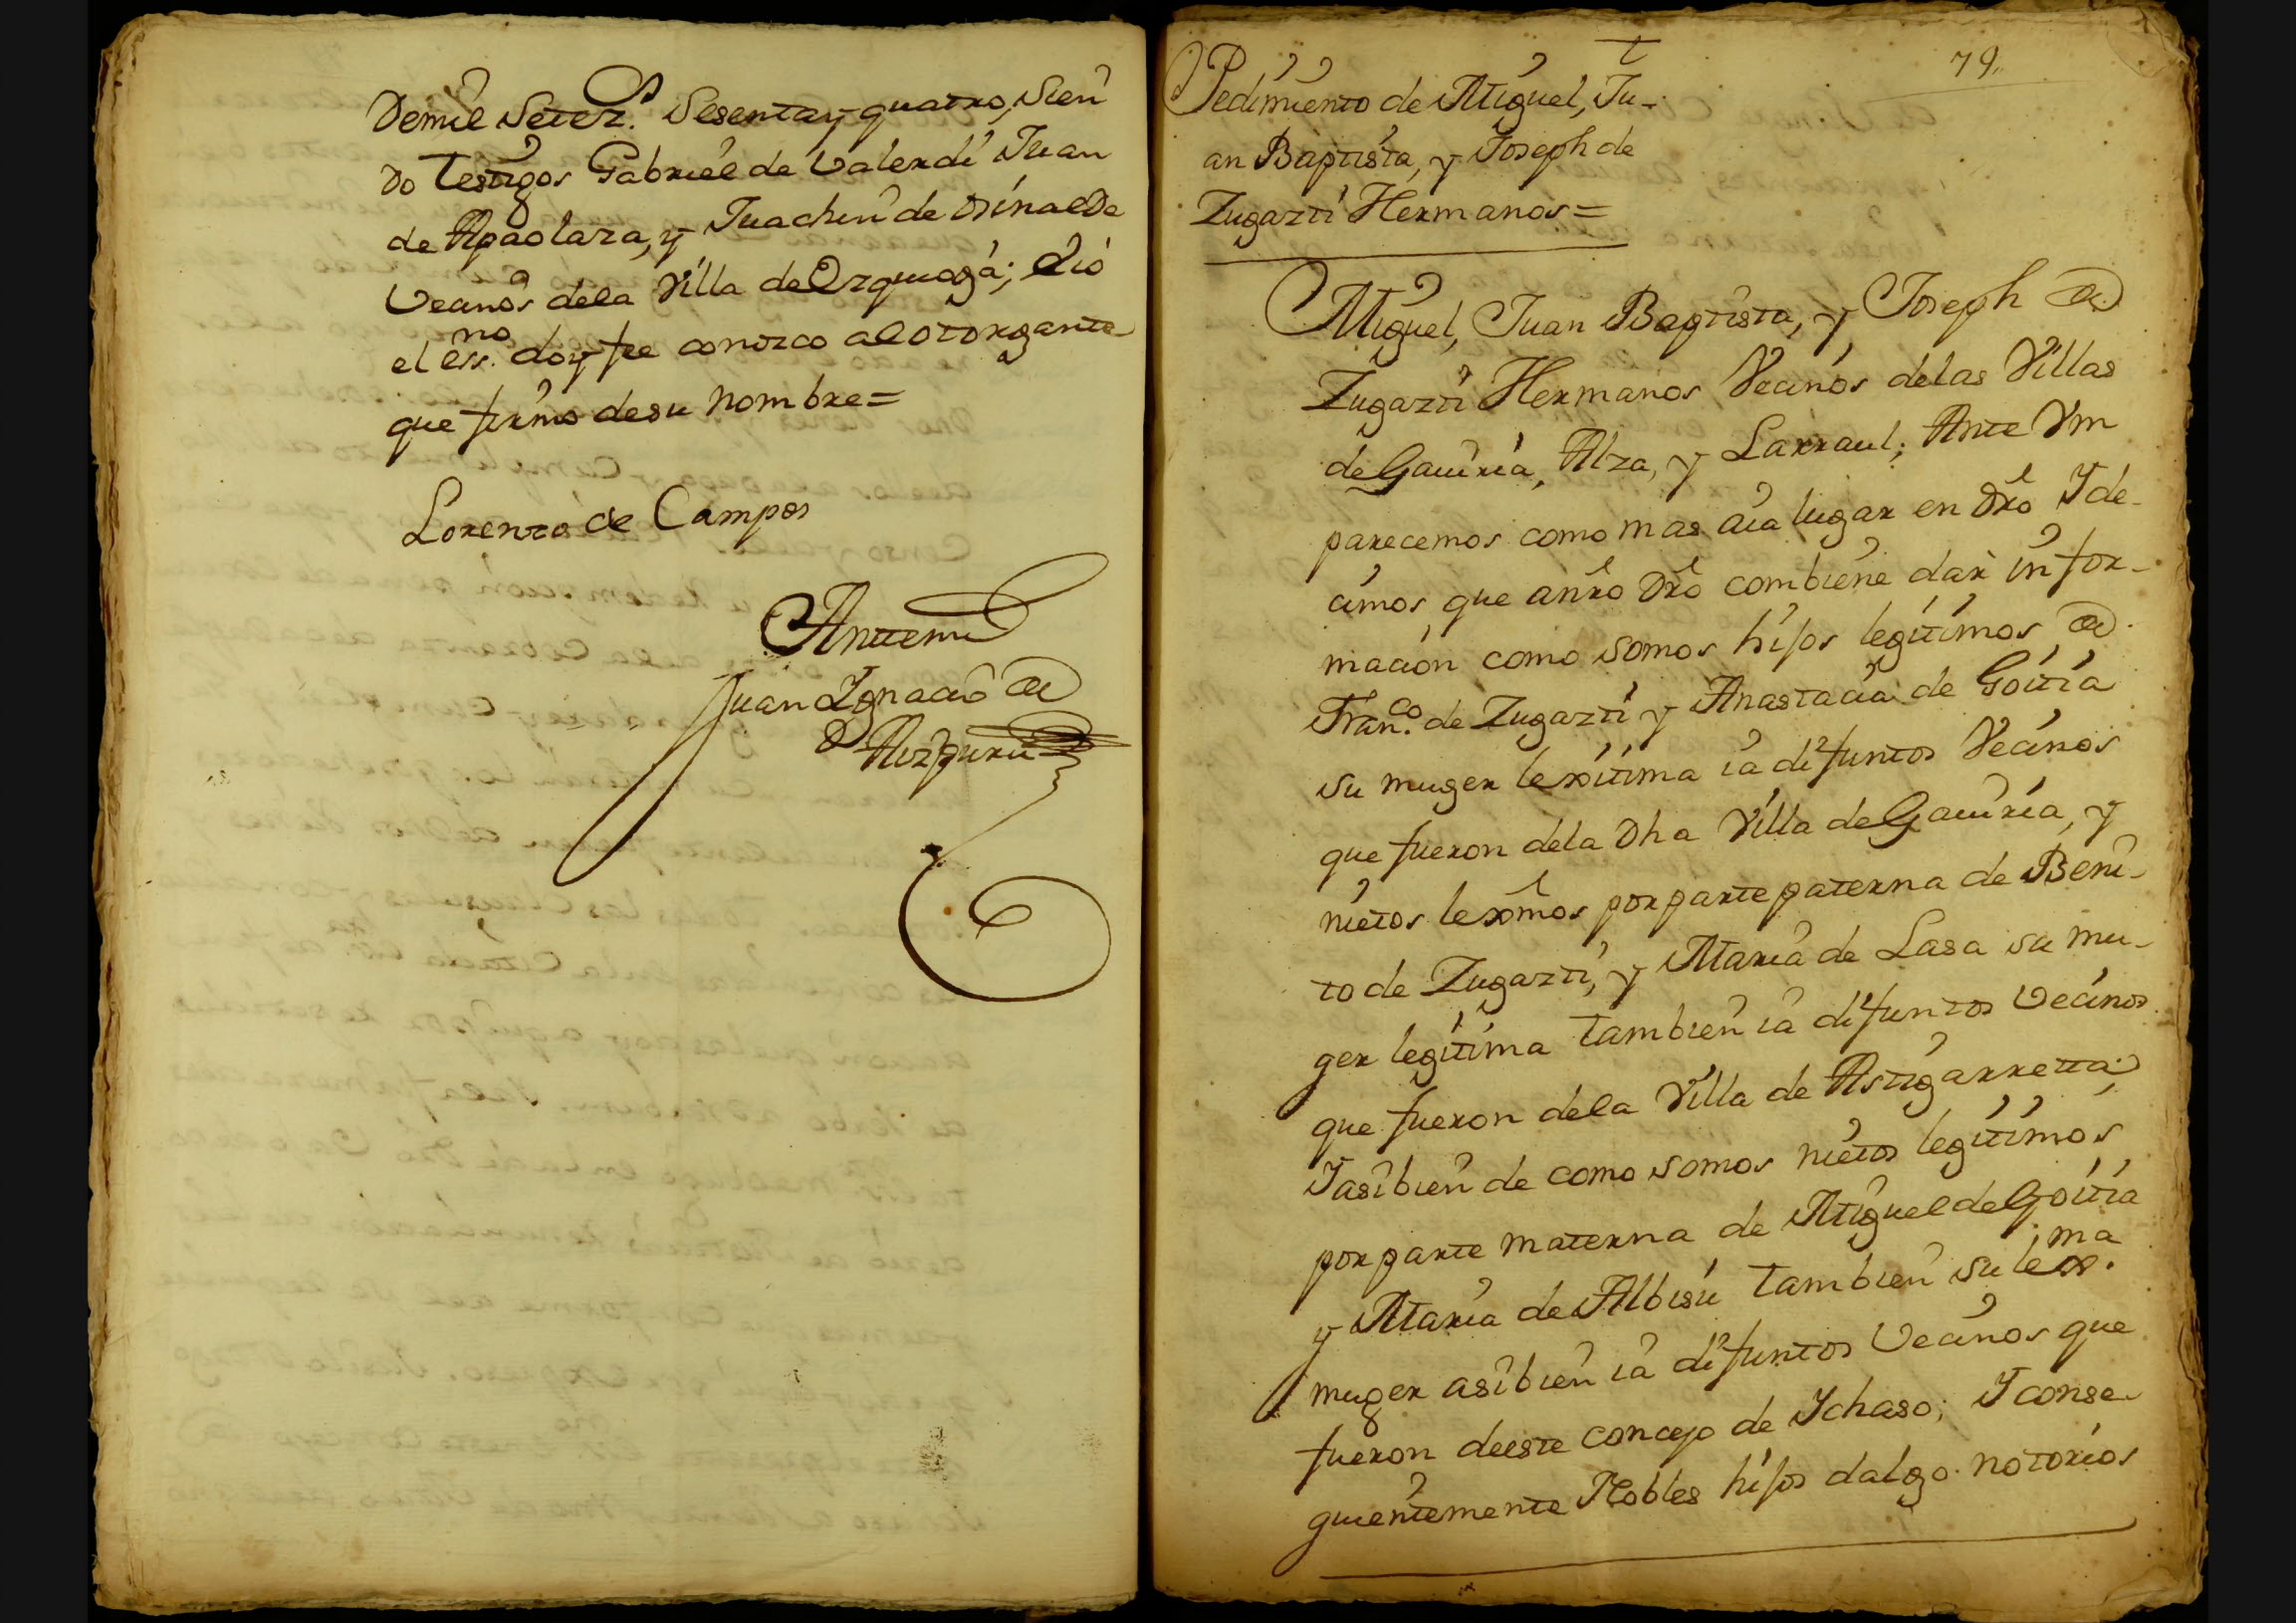 Demil Setez.s Sesenta y quatro, Sien
do Testigos Gabriel de Valerdi Juan
de Apaolaza, y Juachin de
Vecinos de la Villa de Ezquioga; Eió
el ess.no doy fee conozco al otorgante
que firmo de su nombre=
Lorenzo de Campos
Antemi
Juan Ygnacio de
Aizpuru
79.
Pedimiento de Miguel, Ju-
an Baptista, y Joseph de
Zugazti Hermanos=
Miguel, Juan Baptista, y Joseph de
Zugazti Hermanos Vecinos de las Villas
de Gauiria, Alza, y Larraul; Ante Vm
parecemos como mas aia lugar en dro Y de-
cimos, que anro dro combiene dar infor-
macion como somos hijos legitimos de
Fran.co de Zugazti y Anastacia de Goitia
su muger lexitima ia difuntos Vecinos
que fueron de la dha Villa de Gauiria, y
nietos lexmos por parte paterna de Beni-
to de Zugazti, y Maria de Lasa su mu-
ger legitima tambien ia difuntos Vecinos
que fueron de la Villa de Astigarretta;
Y asibien de como somos nietos legitimos
por parte materna de Miguel de Goitia
y Maria de Albisu tambien su lex.ma
muger asibien ia difuntos Vecinos que
fueron de este concejo de Ychaso; Y conse-
guientemente Nobles hijos dalgo notorios